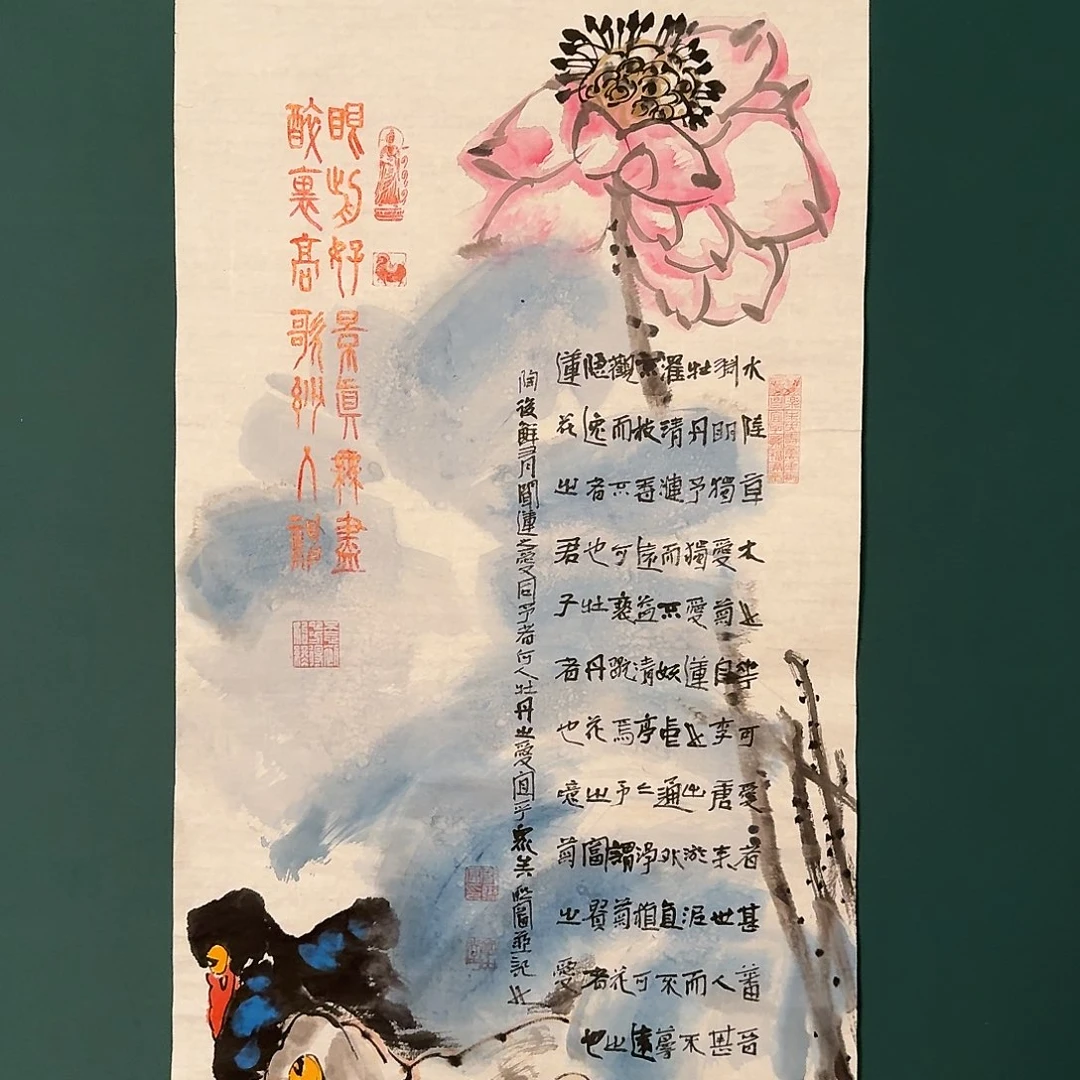 水陸草木之華可愛者甚蕃晉
淵明獨愛菊自李唐來世人甚
牡丹予獨愛蓮之出淤泥而不
濯清漣而不妖中通外直不蔓
不枝香遠益清亭亭淨植可遠
觀而不可褻翫焉予謂菊花之
隱逸者也牡丹花之富貴者也
蓮花之君子者也噫菊之愛
陶後鮮有聞蓮之愛同予者何人牡丹之愛宜乎衆矣圖並記之
眼前好景真無盡
裏高歌入